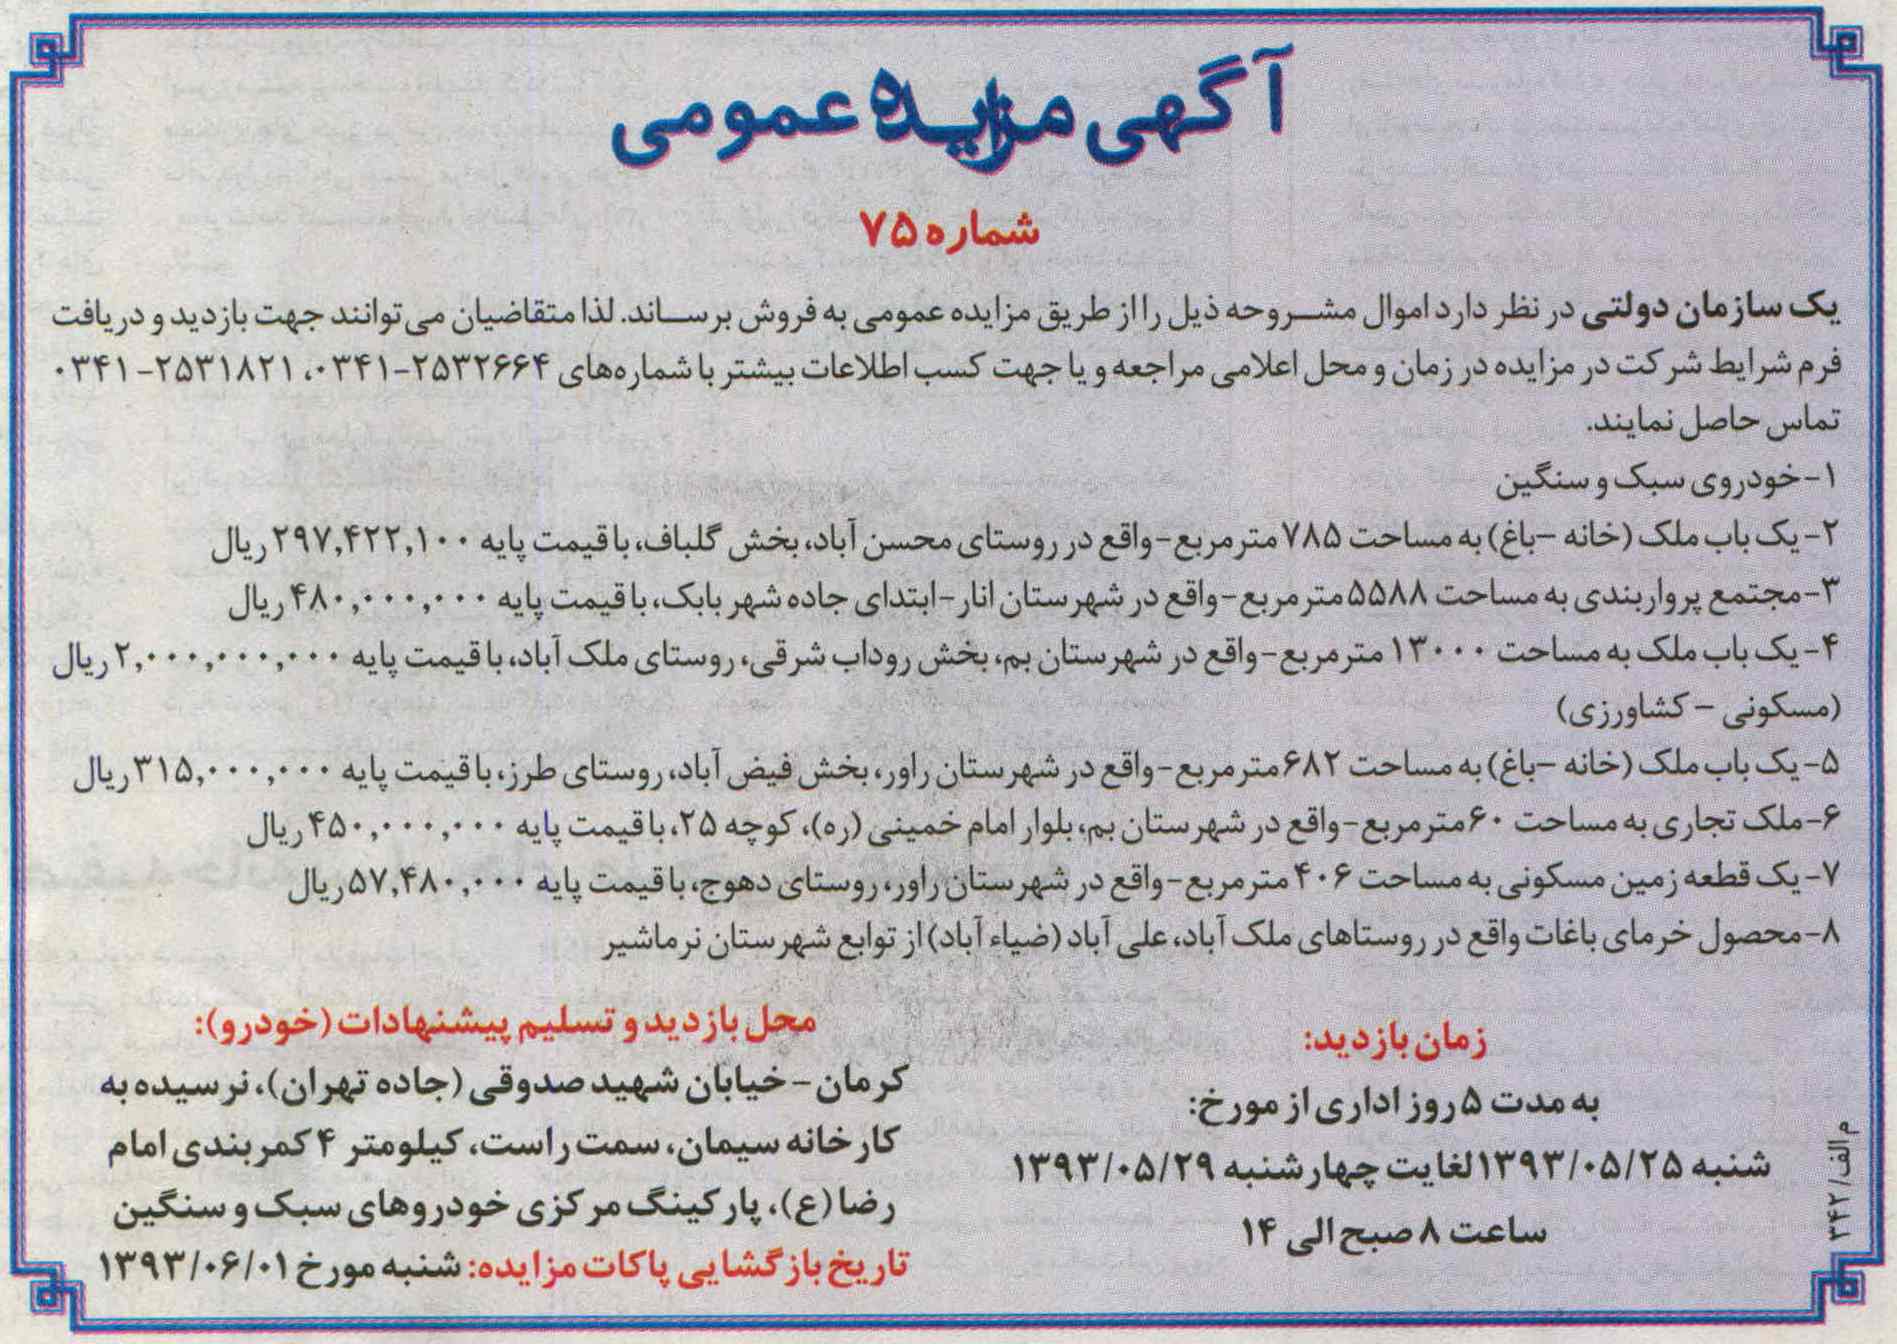 آگهی مزایده عمومی
شماره ۷۵
یک سازمان دولتی در نظر دارد اموال مشـــروحه ذیل را از طریق مزایده عمومی به فروش برســـاند. لذا متقاضیان می‌توانند جهت بازدید و دریافت
فرم شرایط شرکت در مزایده در زمان و محل اعلامی مراجعه و یا جهت کسب اطلاعات بیشتر با شماره‌های ۲۵۳۲۶۶۴-۰۳۴۱، ۲۵۳۱۸۲۱-۰۳۴۱
تماس حاصل نمایند.
۱-خودروی سبک و سنگین
۲-یک باب ملک (خانه –باغ) به مساحت ۷۸۵ مترمربع-واقع در روستای محسن آباد، بخش گلباف، با قیمت پایه ۲۹۷,۴۲۲,۱۰۰ ریال
۳-مجتمع پرواربندی به مساحت ۵۵۸۸ مترمربع-واقع در شهرستان انار-ابتدای جاده شهر بابک، با قیمت پایه ۴۸۰,۰۰۰,۰۰۰ ریال
۴-یک باب ملک به مساحت ۱۳۰۰۰ مترمربع-واقع در شهرستان بم، بخش روداب شرقی، روستای ملک آباد، با قیمت پایه ۲,۰۰۰,۰۰۰,۰۰۰ ریال
(مسکونی – کشاورزی)
۵-یک باب ملک (خانه –باغ) به مساحت ۶۸۲ مترمربع-واقع در شهرستان راور، بخش فیض آباد، روستای طرز، با قیمت پایه ۳۱۵,۰۰۰,۰۰۰ ریال
۶-ملک تجاری به مساحت ۶۰ مترمربع-واقع در شهرستان بم، بلوار امام خمینی (ره)، کوچه ۲۵، با قیمت پایه ۴۵۰,۰۰۰,۰۰۰ ریال
۷-یک قطعه زمین مسکونی به مساحت ۴۰۶ مترمربع-واقع در شهرستان راور، روستای دهوج، با قیمت پایه ۵۷,۴۸۰,۰۰۰ ریال
۸-محصول خرمای باغات واقع در روستاهای ملک آباد، علی آباد (ضیاء آباد) از توابع شهرستان نرماشیر
زمان بازدید:
به مدت ۵ روز اداری از مورخ:
شنبه ۱۳۹۳/۰۵/۲۵ لغایت چهارشنبه ۱۳۹۳/۰۵/۲۹
ساعت ۸ صبح الی ۱۴
محل بازدید و تسلیم پیشنهادات (خودرو):
کرمان-خیابان شهید صدوقی (جاده تهران)، نرسیده به
کارخانه سیمان، سمت راست، کیلومتر ۴ کمربندی امام
رضا (ع)، پارکینگ مرکزی خودروهای سبک و سنگین
تاریخ بازگشایی پاکات مزایده: شنبه مورخ ۱۳۹۳/۰۶/۰۱
م الف/۳۴۲